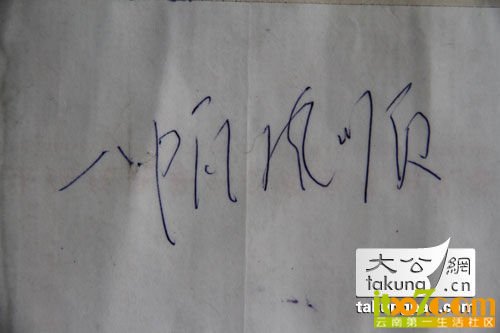 一帆风顺
大公網
takung.cn
云南第一生活社区